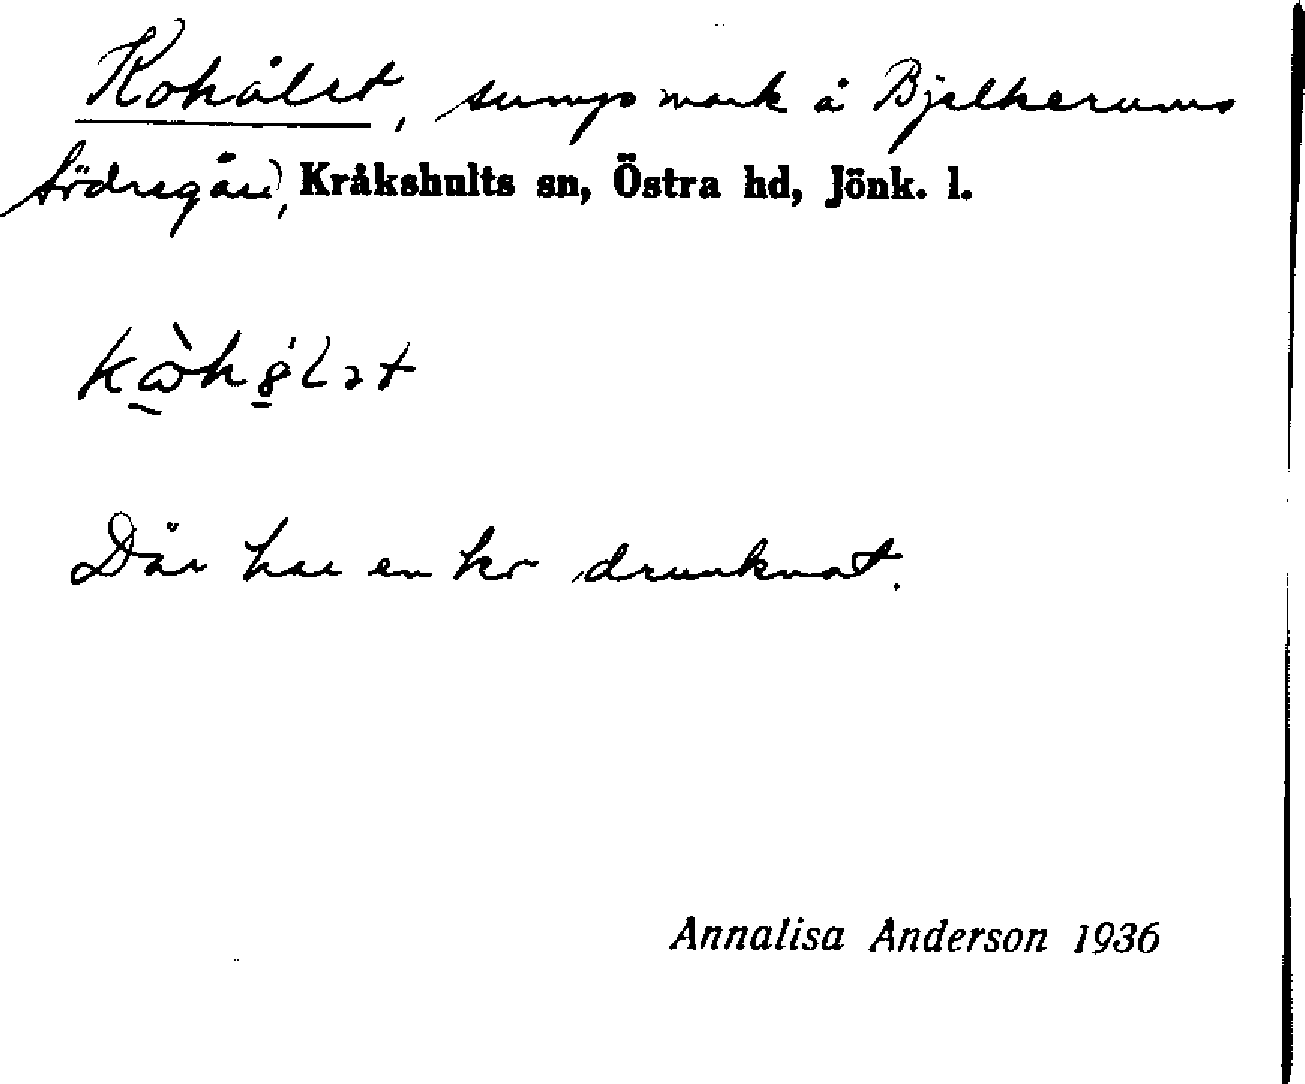 Kohålet, sumpmark å Bjelkerums
Södregård, Kråkshults sn, Östra hd, Jönk. l.
Där har en ko drunknat.
Annalisa Anderson 1936